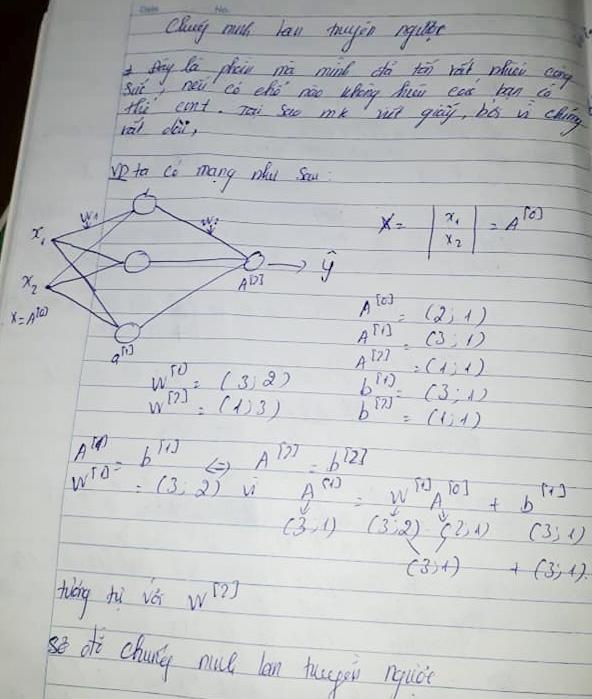 Date No.
Chứng minh lan truyền ngược
Đây là phần mà mình đã tốn rất nhiều công
sức, nếu có chỗ nào không hiểu các bạn có
thể cmt. Tại sao mk viết giấy, bởi vì chúng
rất dài,
VD ta có mạng như sau:
W1 W2
x1
x2
X=A[0]
a[1]
A[2] → ŷ
X = | x1 x2 | = A[0]
A[0] = (2;1)
A[1] = (3;1)
A[2] = (1;1)
W[1] = (3;2) b[1] = (3;1)
W[2] = (1;3) b[2] = (1;1)
A[1] = b[1] ⇔ A[2] = b[2]
W[1] = (3;2) vì A[1] = W[1] A[0] + b[1]
(3;1) (3;2) (2;1) (3;1)
(3;1) + (3;1).
tương tự với W[2]
sơ đồ chứng minh lan truyền ngược